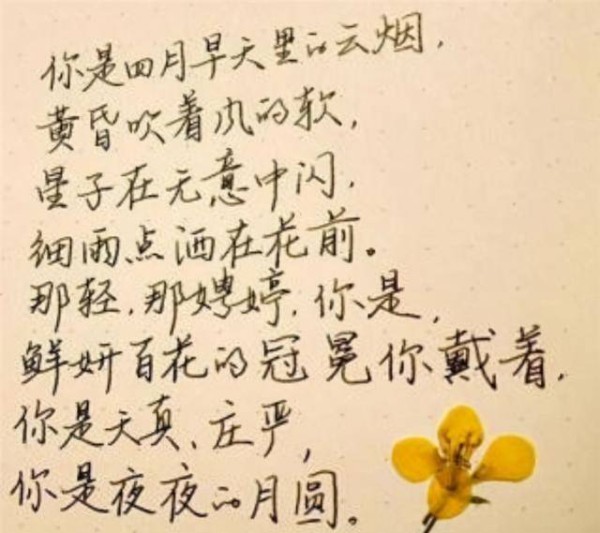 你是四月早天里的云烟，
黄昏吹着风的软，
星子在无意中闪，
细雨点洒在花前。
那轻，那娉婷，你是，
鲜妍百花的冠冕你戴着，
你是天真、庄严，
你是夜夜的月圆。